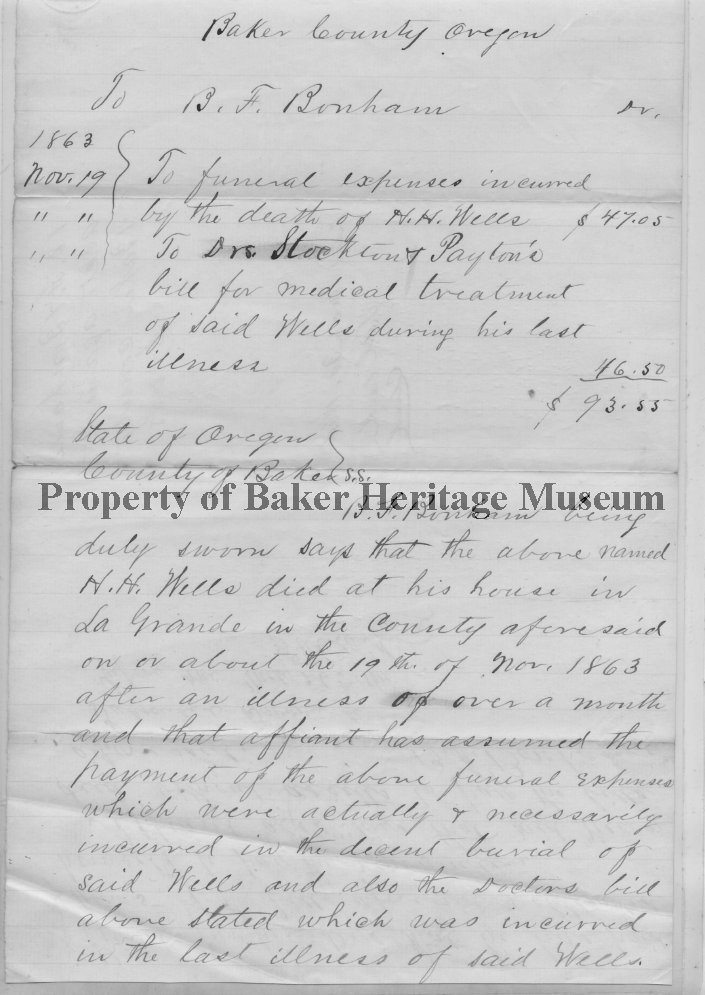 Baker County Oregon
To B. F. Bonham Dr.
1863
Nov. 19 To funeral expenses incurred
" " by the death of H.H. Wells $ 47.05
" " To Drs. Stockton & Payton's
bill for medical treatment
of said Wells during his last
illness 46.50
$ 93.55
State of Oregon
County of Baker s.s.
Property of Baker Heritage Museum
B.F. Bonham being
duly sworn says that the above named
H.H. Wells died at his house in
La Grande in the County aforesaid
on or about the 19th. of Nov. 1863
after an illness of over a month
and that affiant has assumed the
payment of the above funeral expenses
which were actually & necessarily
incurred in the decent burial of
said Wells and also the Doctors bill
above stated which was incurred
in the last illness of said Wells.